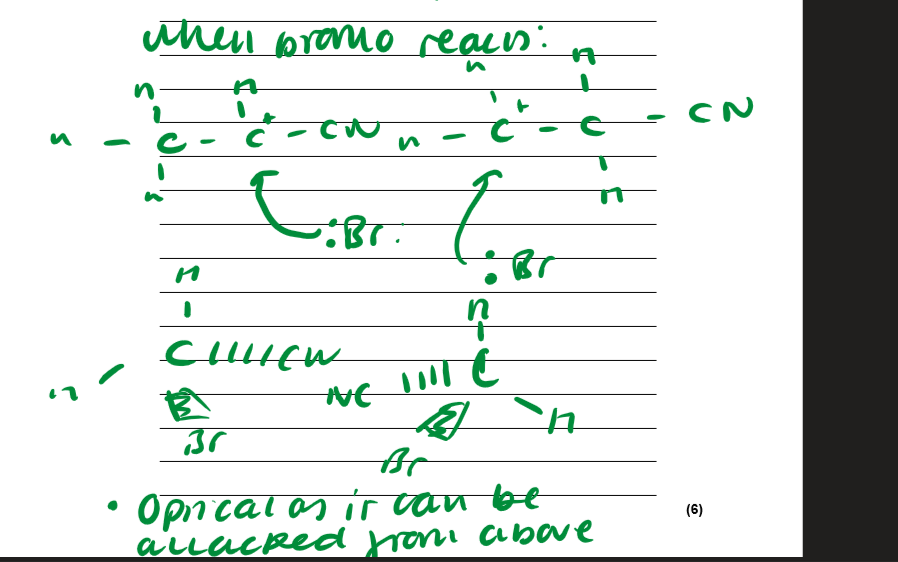 when bromo reacts:
H H H H
H - C - C⁺ - CN H - C⁺ - C - CN
H H
:Br: :Br
H H
C CN NC C
H H
Br Br
• Optical as it can be
(6)
attacked from above